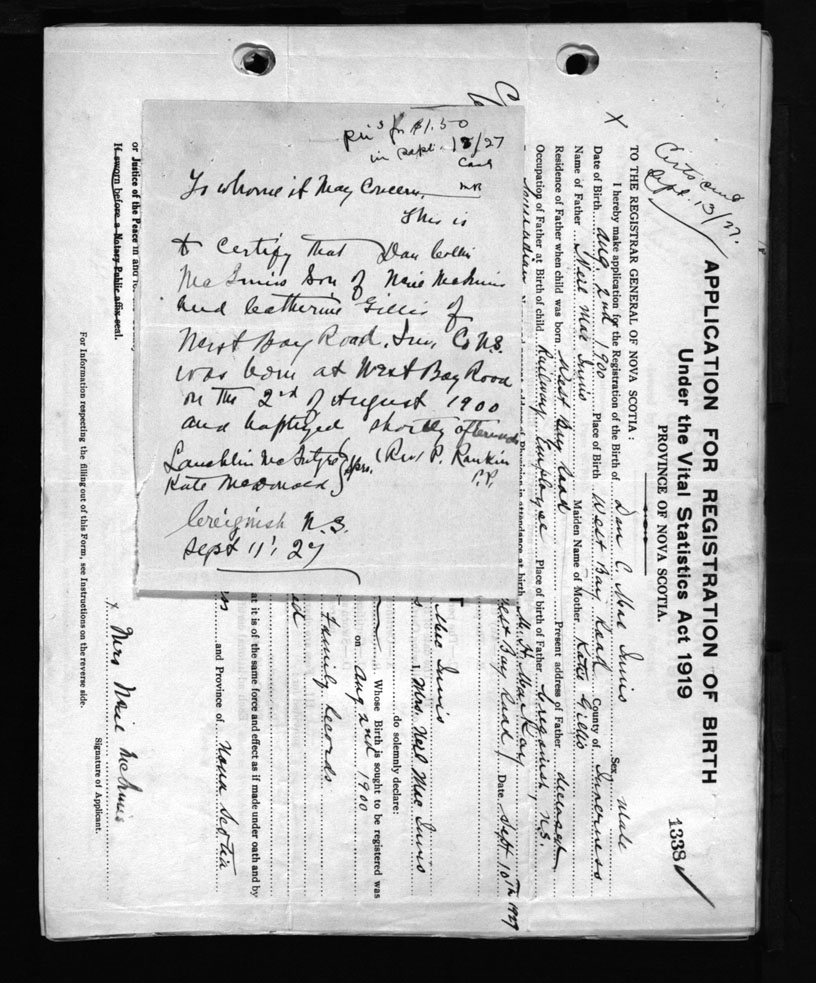 pd's for $1.50
in Sept. 13/27
Cash
MR
To whome it May Concern,
This is
to certify that Dan Collin
MacInnis Son of Neil McInnis
and Catherine Gillis of
West Bay Road, Inv. Co N.S.
was born at West Bay Road
on the 2nd of August 1900
and baptized shortly afterwards
Lauchlin McIntyre } Sprs. (Rev P. Rankin
Kate McDonald } P.P.
Creignish N.S.
Sept 11', 27
Sept. 13/27.
1338
APPLICATION FOR REGISTRATION OF BIRTH
Under the Vital Statistics Act 1919
PROVINCE OF NOVA SCOTIA.
X
TO THE REGISTRAR GENERAL OF NOVA SCOTIA:
I hereby make application for the Registration of the Birth of Dan C. Mac Innis Sex Male
Date of Birth Aug. 2nd 1900 Place of Birth West Bay Road County of Inverness
Name of Father Neil Mac Innis Maiden Name of Mother Katie Gillis
Residence of Father when child was born West Bay Road Present address of Father deceased
Occupation of Father at Birth of child Railway Employee Place of birth of Father Creignish, N.S.
Physician in attendance at birth M. H. MacKay
West Bay Road Date Sept 10th 1927
Mac Innis
I, Mrs. Neil Mac Innis
do solemnly declare:
Whose Birth is sought to be registered was
on Aug 2nd 1900
Family Records
at it is of the same force and effect as if made under oath and by
and Province of Nova Scotia
or Justice of the Peace in and for
If sworn before a Notary Public affix seal.
x Mrs Neil McInnis
Signature of Applicant.
For Information respecting the filling out of this Form, see Instructions on the reverse side.